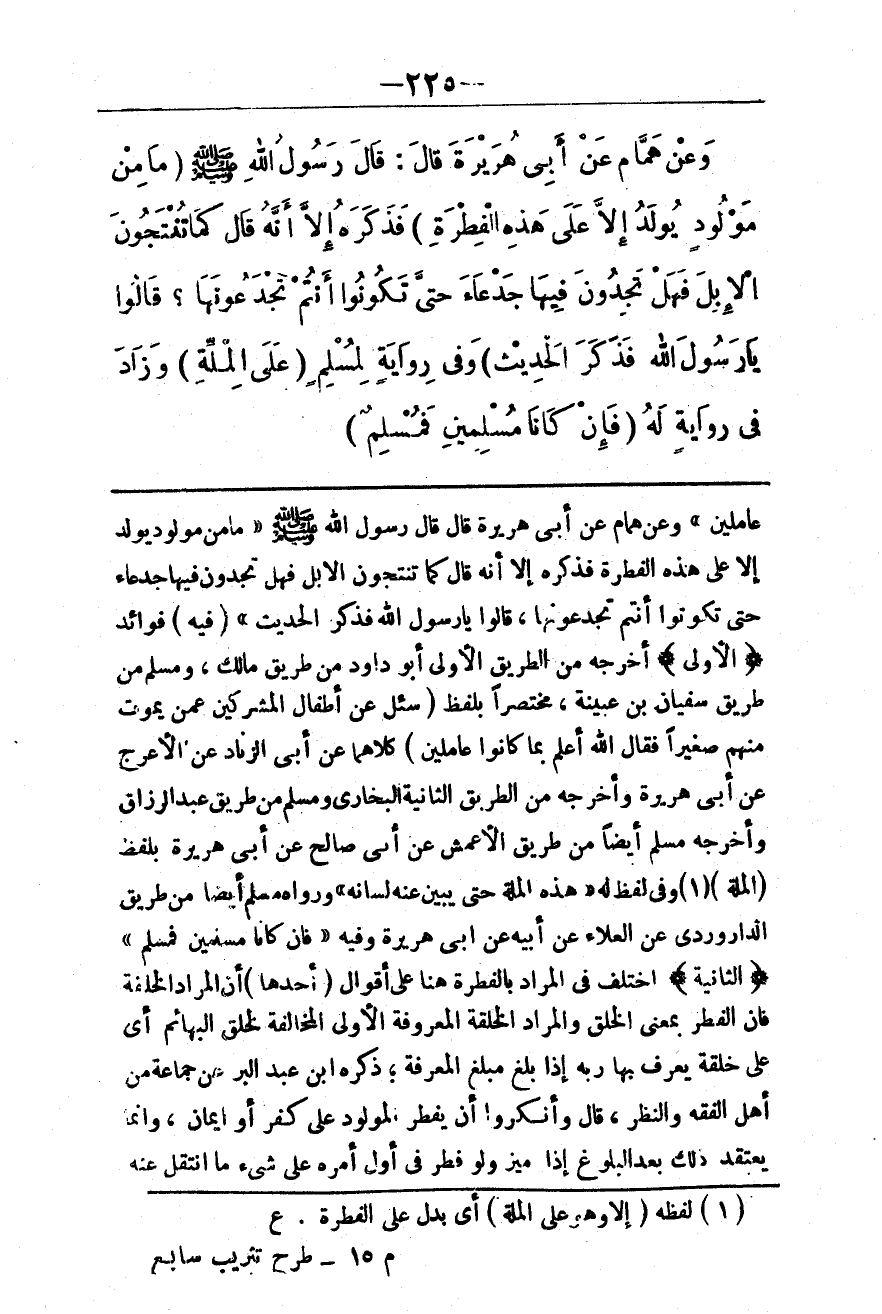 —٢٢٥—
وَعَنْ هَمَّامٍ عَنْ أَبِى هُرَيْرَةَ قَالَ : قَالَ رَسُولُ اللهِ ﷺ ( مَا مِنْ
مَوْلُودٍ يُولَدُ إِلاَّ عَلَى هَذِهِ الْفِطْرَةِ ) فَذَكَرَهُ إِلاَّ أَنَّهُ قَالَ كَمَا تُنْتِجُونَ
الْإِبِلَ فَهَلْ تَجِدُونَ فِيهَا جَدْعَاءَ حَتَّى تَكُونُوا أَنْتُمْ تَجْدَعُونَهَا ؟ قَالُوا
يَارَسُولَ الله فَذَكَرَ الْحَدِيثَ ) وَفى رِوَايَةٍ لِمُسْلِمٍ ( عَلَى الْمِلَّةِ ) وَزَادَ
فى روَايَةٍ لَهُ ( فَإِنْ كَانَا مُسْلِمِينِ فَمُسْلِمٌ )
عاملين » وعن همام عن أبى هريرة قال قال رسول الله ﷺ « مامن مولود يولد
إلا على هذه الفطرة فذكره إلا أنه قال كما تنتجون الابل فهل تجدون فيها جدعاء
حتى تكونوا أنتم تجدعونها ، قالوا يارسول الله فذكر الحديث » ( فيه ) فوائد
﴿ الأولى ﴾ أخرجه من الطريق الأولى أبو داود من طريق مالك ، ومسلم من
طريق سفيان بن عيينة ، مختصراً بلفظ ( سئل عن أطفال المشركين عمن يموت
منهم صغيراً فقال الله أعلم بما كانوا عاملين ) كلاهما عن أبى الزناد عن الأعرج
عن أبى هريرة وأخرجه من الطريق الثانية البخارى ومسلم من طريق عبد الرزاق
وأخرجه مسلم أيضاً من طريق الأعمش عن أبى صالح عن أبى هريرة بلفظ
(الملة )(١) وفى لفظ له « هذه الملة حتى يبين عنه لسانه» ورواه مسلم أيضا من طريق
الداروردى عن العلاء عن أبيه عن ابى هريرة وفيه « فان كانا مسلمين فمسلم »
﴿ الثانية ﴾ اختلف فى المراد بالفطرة هنا على أقوال ( أحدها ) أن المراد الخلقة
فان الفطر بمعنى الخلق والمراد الخلقة المعروفة الأولى المخالفة لخلق البهائم أى
على خلقة يعرف بها ربه إذا بلغ مبلغ المعرفة ؛ ذكره ابن عبد البر عن جماعة من
أهل الفقه والنظر ، قال وأنكروا أن يفطر المولود على كفر أو ايمان ، وانما
يعتقد ذلك بعد البلوغ إذا ميز ولو فطر فى أول أمره على شىء ما انتقل عنه
( ١ ) لفظه ( إلا وهو على الملة ) أى بدل على الفطرة . ع
م ١٥ — طرح تثريب سابع